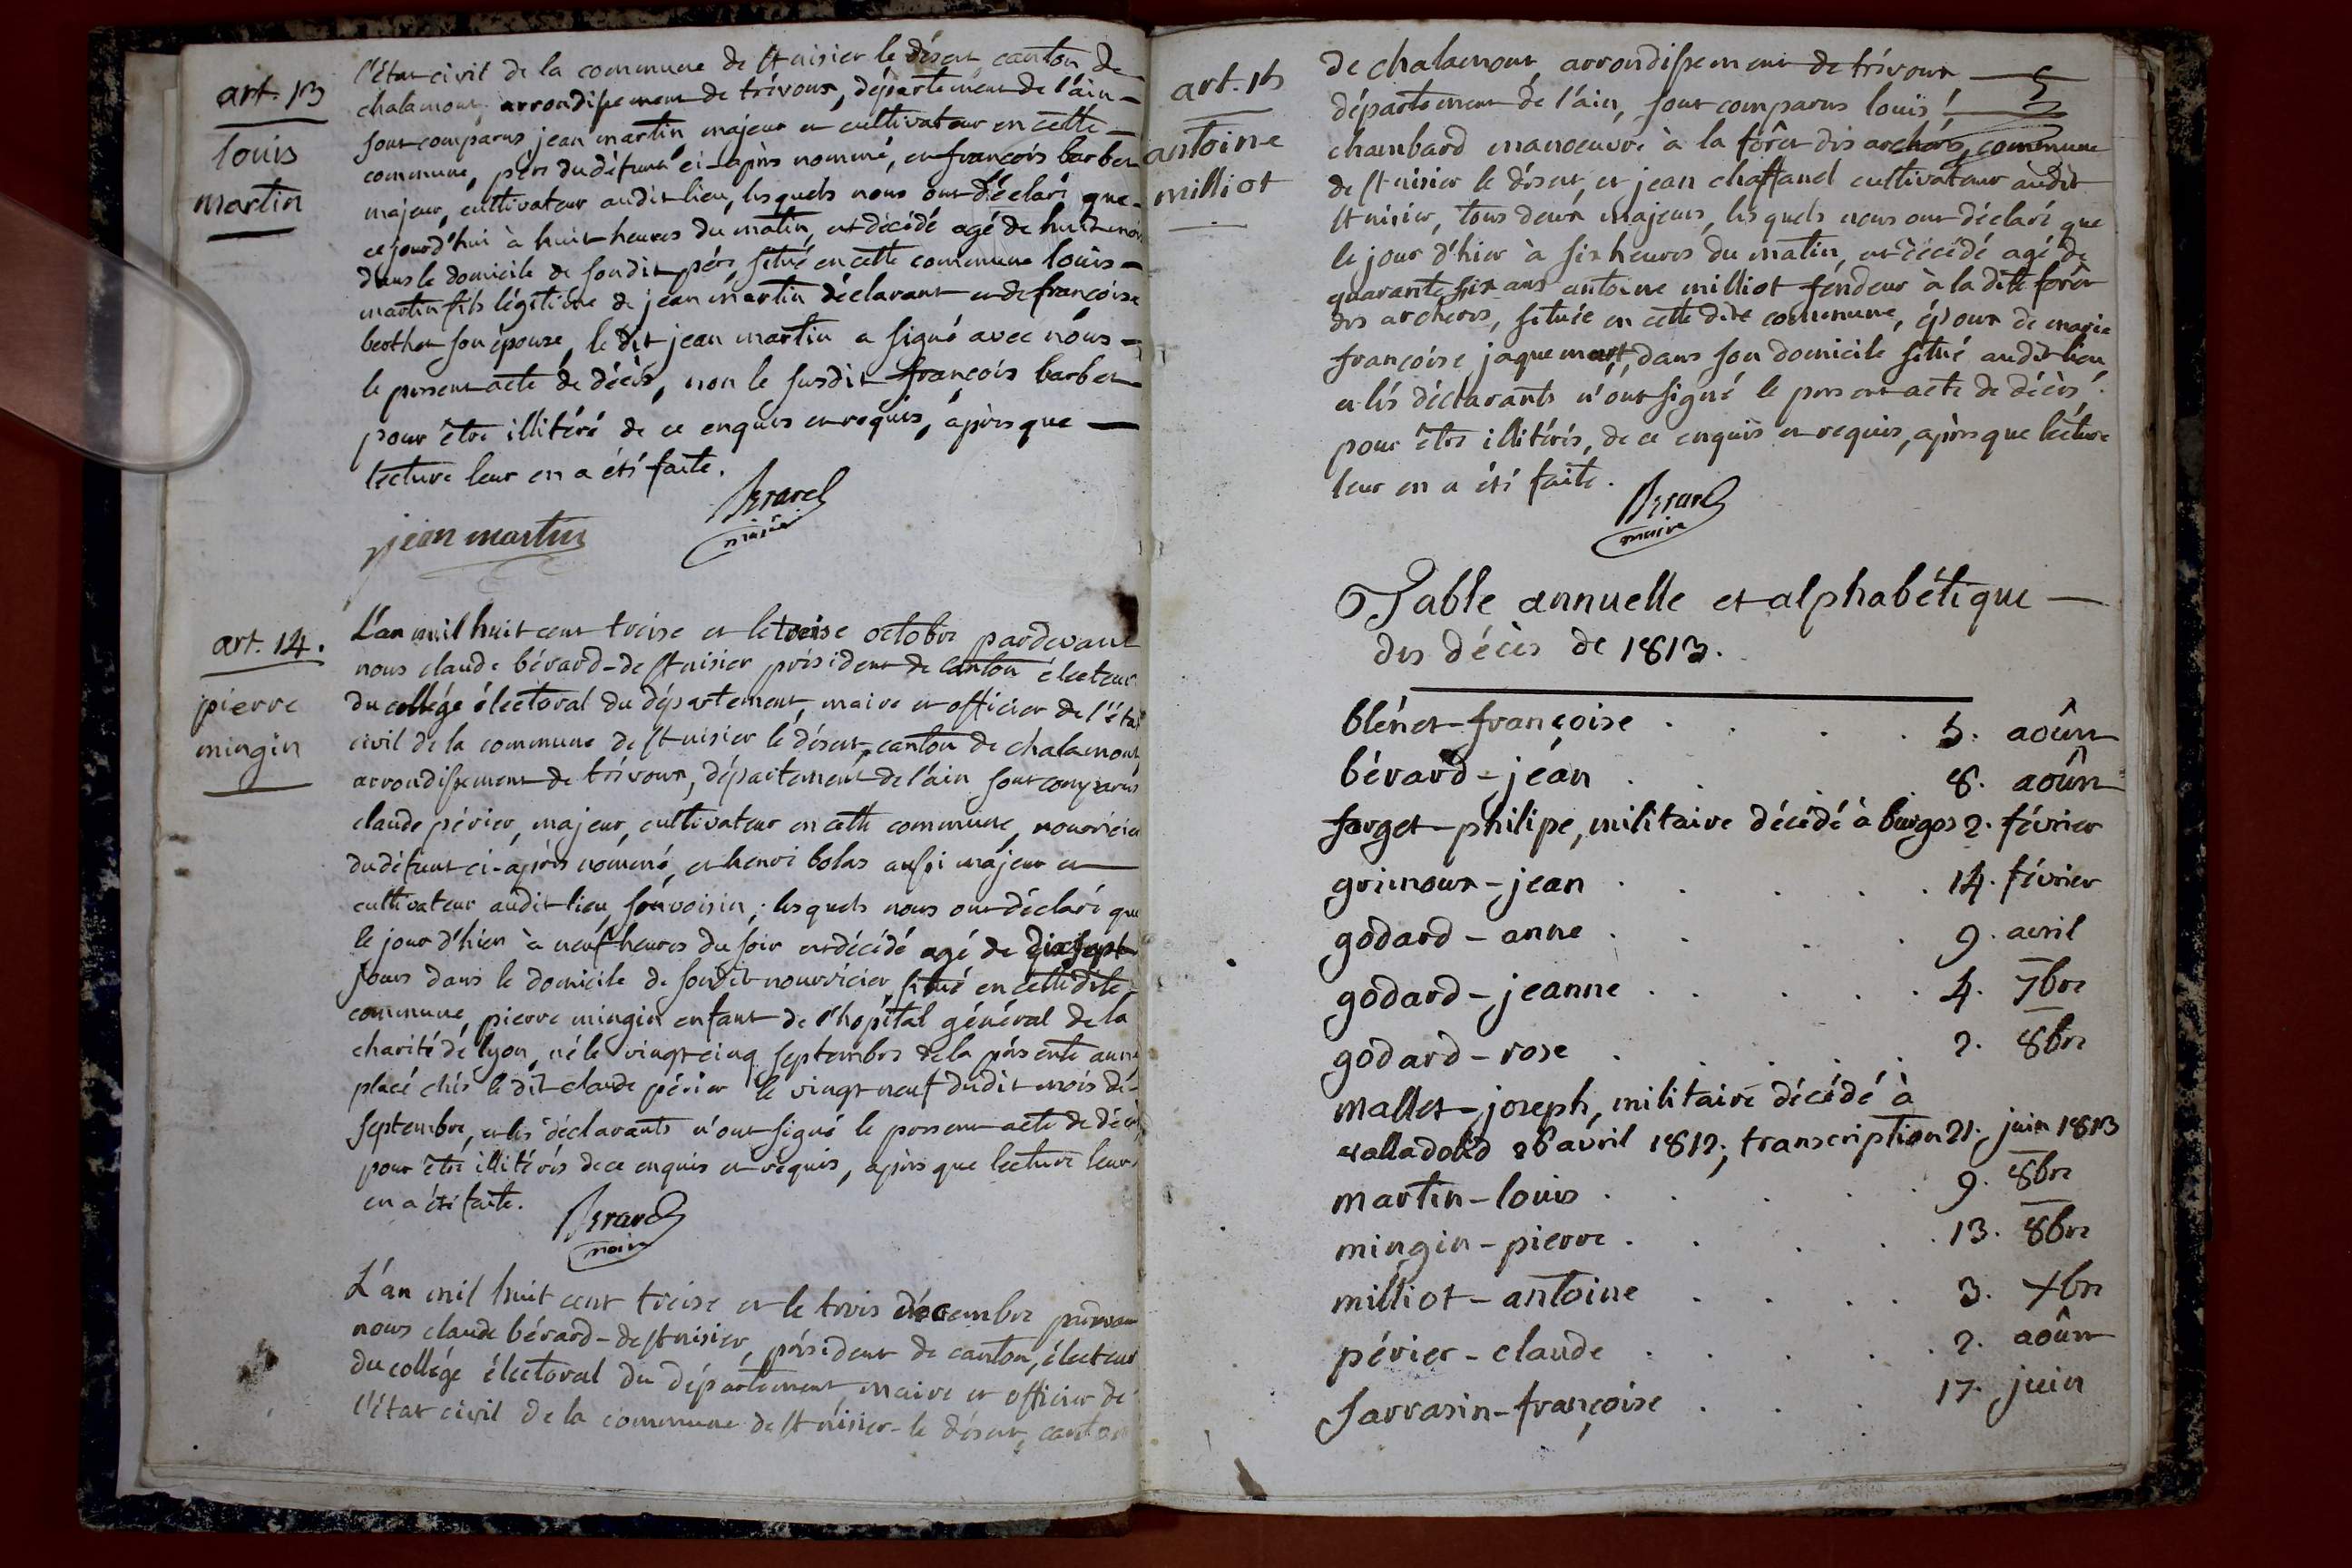 art. 13
louis
martin
l'état civil de la commune de st nisier le désert canton de
chalamont, arrondissement de trévoux, département de l'ain
sont comparus jean martin majeur et cultivateur en cette
commune, père du défunt ci-après nommé, et françois barbet
majeur, cultivateur audit lieu, lesquels nous ont déclaré que
cejourd'hui à huit heures du matin, est décédé agé de huit mois
dans le domicile de sondit père, situé en cette commune louis
martin fils légitime de jean martin déclarant et de françoise
berthet son épouse, le dit jean martin a signé avec nous
le present acte de décès, non le susdit françois barbet
pour être illitéré de ce enquis et requis, après que
lecture leur en a été faite.
jean martin
Berard
maire
art. 14.
pierre
mingin
L'an mil huit cent treise et le treise octobre pardevant
nous claude bérard-de st nisier président de canton électeur
du collége électoral du département, maire et officier de l'état
civil de la commune de st nisier le désert, canton de chalamont,
arrondissement de trévoux, département de l'ain sont comparus
claude périer, majeur, cultivateur en cette commune, nourricier
du défunt ci-après nommé, et henri bolas aussi majeur et
cultivateur audit lieu, son voisin; lesquels nous ont déclaré que
le jour d'hier à neuf heures du soir est décédé agé de dix sept
jours dans le domicile de sondit nourricier, situé en cette dite
commune, pierre mingin enfant de l'hôpital général de la
charité de lyon, né le vingt cinq septembre de la présente année
placé chés le dit claude périer le vingt neuf dudit mois de
septembre, et les déclarants n'ont signé le present acte de décès,
pour être illitérés de ce enquis et requis, après que lecture leur
en a été faite.
Berard
maire
L'an mil huit cent treise et le trois décembre pardevant
nous claude bérard-de st nisier, président de canton, électeur
du collége électoral du département, maire et officier de
l'état civil de la commune de st nisier-le désert, canton
art. 15
antoine
milliot
de chalamont, arrondissement de trévoux
département de l'ain, sont comparus louis
chambard manoeuvre à la forêt des archers, commune
de st nisier le désert, et jean chaffand cultivateur audit
st nisier, tous deux majeurs, lesquels nous ont déclaré que
le jour d'hier à six heures du matin, est décédé agé de
quarante six ans antoine milliot fendeur à la dite forêt
des archers, située en cette dite commune, époux de marie
françoise jaquemart, dans son domicile situé audit lieu,
et lés déclarants n'ont signé le present acte de décès
pour être illitérés, de ce enquis et requis, après que lécture
leur en a été faite.
Berard
maire
Table annuelle et alphabétique
des décès de 1813.
blénet-françoise . . . . 5. août
bérard-jean . . . 8. août
farget-philipe, militaire décédé à burgos 2. février
grimoux-jean . . . . . 14. février
godard-anne . . . . 9. avril
godard-jeanne . . . . . 4. 7bre
godard-rose . . . . . 2. 8bre
mallet-joseph, militaire décédé à
valladolid 26 avril 1812; transcription 21. juin 1813
martin-louis . . . . . 9. 8bre
mingin-pierre . . . . . 13. 8bre
milliot-antoine . . . . 3. Xbre
périer-claude . . . . . 2. août
sarrasin-françoise . . . 17. juin